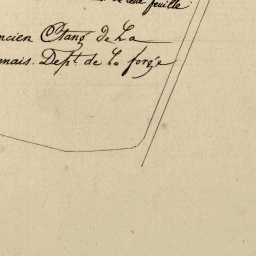 de cette feuille
ncien Etang de La
nais. Dept. de la forge